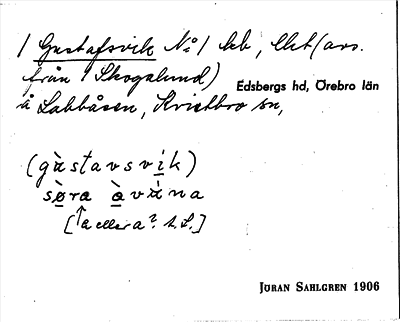 1 Gustafsvik No 1 hb, lht (avs.
från 1 Skogalund)
Edsbergs hd, Örebro län
å Labbåsen, Kvistbro sn,
(gùstavsvi̲k)
sø̲̀ra à̲vàna
[↑a eller a? J.S.]
JÖRAN SAHLGREN 1906